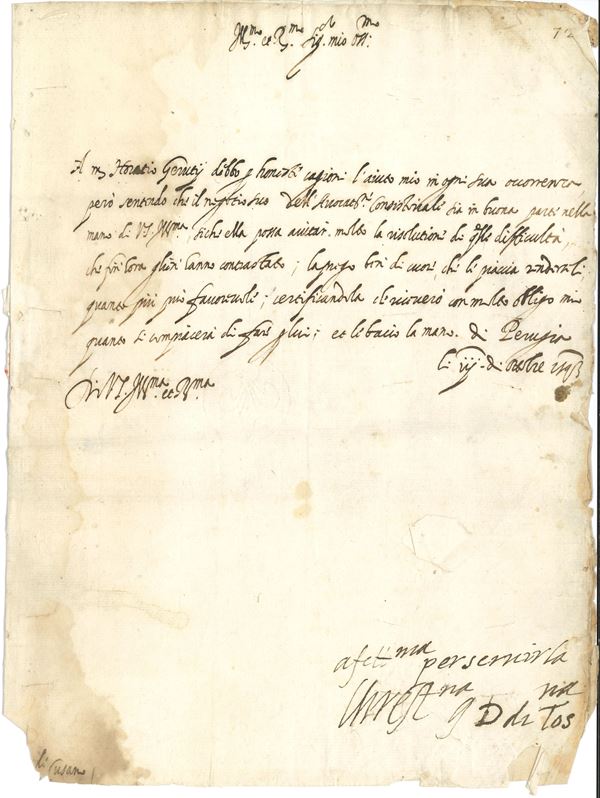 Ill.mo et R.mo Sig.r mio Oss.mo
72
A m Horatio Gerutij debbo p honeste cagioni l'aiuto mio in ogni sua occorrenza
però sentendo che il negotio suo dell'Avocat.ne Consistoriale sia in buona parte nella
mano di VS. Ill.ma, e che ella possa aiutar molto la risolutione di qlle difficultà,
che fin hora gliùl'hanno contrastato; la prego ben di cuore che le piaccia renderseli
quanto più può favorevole; certificandola che riceverò con molto obligo mio
quanto si compiacerà di fare p lui; et le bacio la mano. di Perugia
li iij di Ottobre 1593
Di VS. Ill.ma et R.ma
afeti.ma per servirla
Christ.na G D di Tos.na
li Cusano